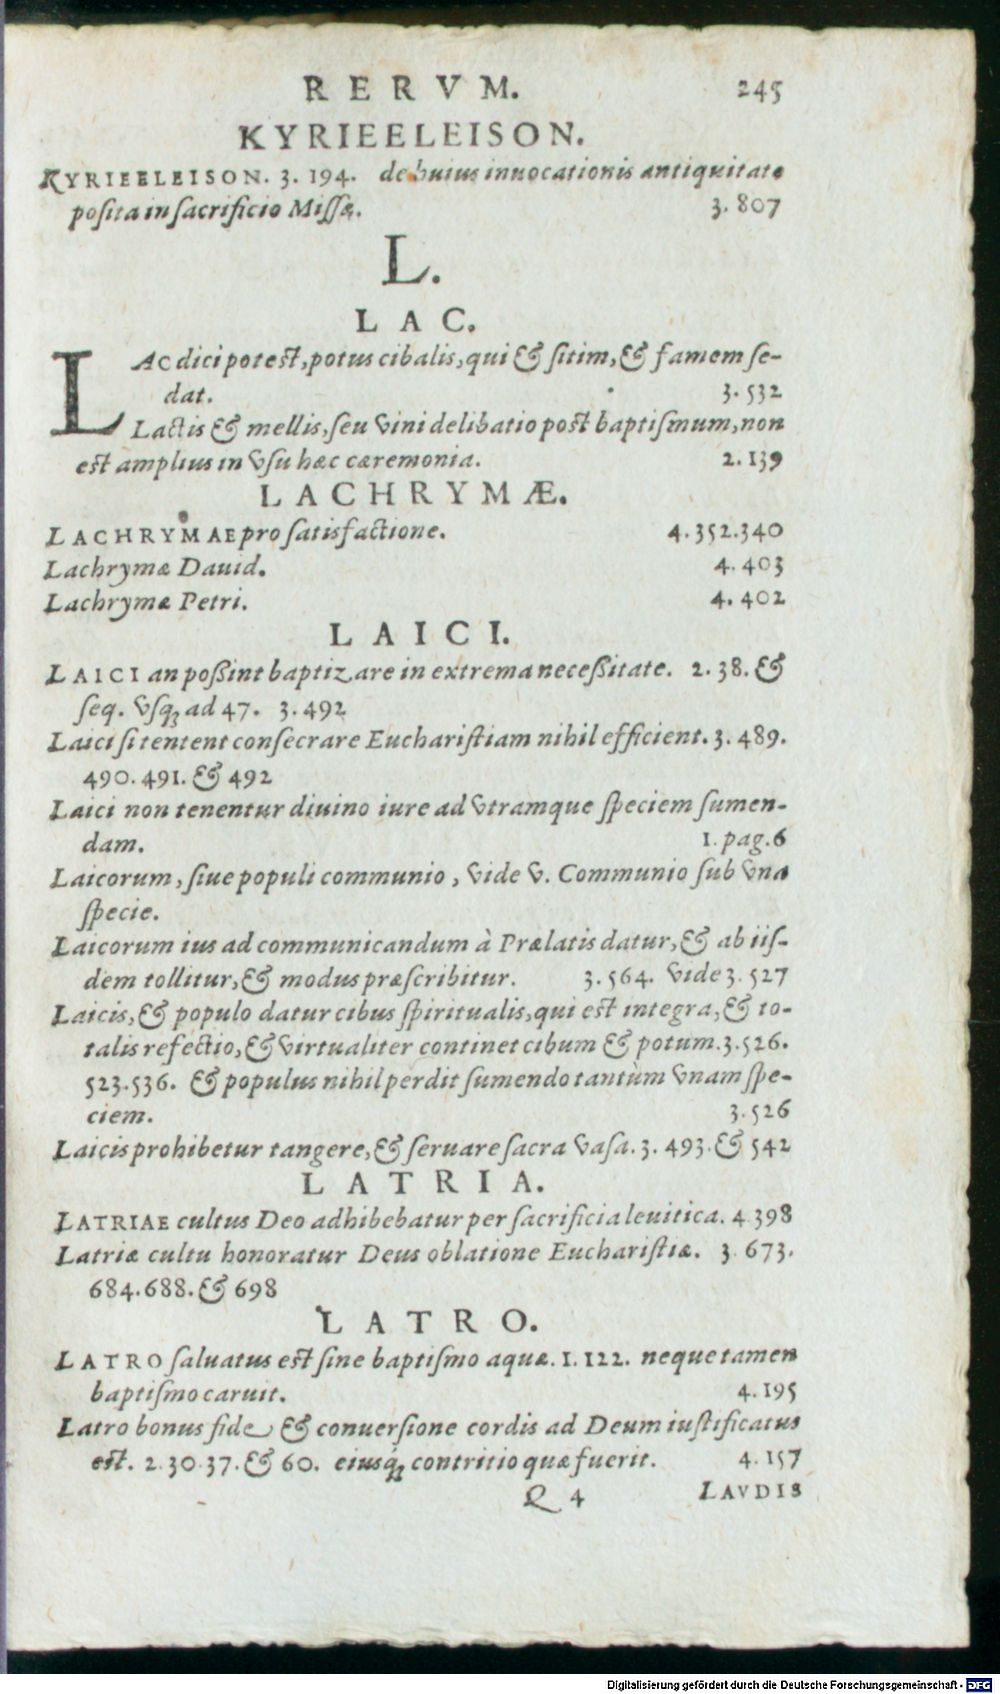 RERVM. 245
KYRIEELEISON.
KYRIEELEISON. 3. 194. de huius inuocationis antiquitate
posita in sacrificio Missæ. 3. 807
L.
LAC.
LAC dici potest, potus cibalis, qui & sitim, & famem se-
dat. 3. 532
Lactis & mellis, seu vini delibatio post baptismum, non
est amplius in vsu hæc cæremonia. 2. 139
LACHRYMÆ.
LACHRYMAE pro satisfactione. 4. 352. 340
Lachrymæ Dauid. 4. 403
Lachrymæ Petri. 4. 402
LAICI.
LAICI an possint baptizare in extrema necessitate. 2. 38. &
seq. vsq; ad 47. 3. 492
Laici si tentent consecrare Eucharistiam nihil efficient. 3. 489.
490. 491. & 492
Laici non tenentur diuino iure ad vtramque speciem sumen-
dam. 1. pag. 6
Laicorum, siue populi communio, vide v. Communio sub vna
specie.
Laicorum ius ad communicandum à Prælatis datur, & ab iis-
dem tollitur, & modus præscribitur. 3. 564. vide 3. 527
Laicis, & populo datur cibus spiritualis, qui est integra, & to-
talis refectio, & virtualiter continet cibum & potum. 3. 526.
523. 536. & populus nihil perdit sumendo tantùm vnam spe-
ciem. 3. 526
Laicis prohibetur tangere, & seruare sacra vasa. 3. 493. & 542
LATRIA.
LATRIAE cultus Deo adhibebatur per sacrificia leuitica. 4 398
Latriæ cultu honoratur Deus oblatione Eucharistiæ. 3. 673.
684. 688. & 698
LATRO.
LATRO saluatus est sine baptismo aquæ. 1. 122. neque tamen
baptismo caruit. 4. 195
Latro bonus fide & conuersione cordis ad Deum iustificatus
est. 2. 30. 37. & 60. eiusq́; contritio quæ fuerit. 4. 157
Q 4 LAVDIS
Digitalisierung gefördert durch die Deutsche Forschungsgemeinschaft - DFG